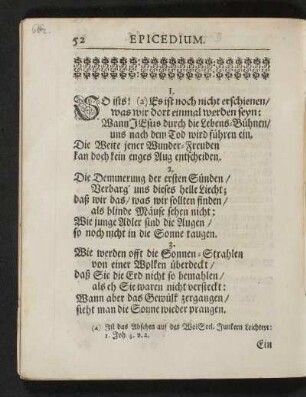 52 EPICEDIUM.
1.
SO ists! (a) Es ist noch nicht erschienen/
was wir dort einmal werden seyn:
Wann JEsus durch die Lebens-Bühnen/
uns nach dem Tod wird führen ein.
Die Weite jener Wunder-Freuden
kan doch kein enges Aug entscheiden.
2.
Die Demmerung der ersten Sünden/
Verbarg uns dieses helle Liecht;
daß wir das/ was wir sollten finden/
als blinde Mäuse sehen nicht:
Wie junge Adler sind die Augen/
so noch nicht in die Sonne taugen.
3.
Wie werden offt die Sonnen-Strahlen
von einer Wolken überdeckt/
daß Sie die Erd nicht so bemahlen/
als eh Sie waren nicht versteckt:
Wann aber das Gewülk zergangen/
sieht man die Sonne wieder prangen.
(a) Ist das Absehen auf des Wol Seel. Junkern Leichtext:
1. Joh 3. v. 2.
Ein